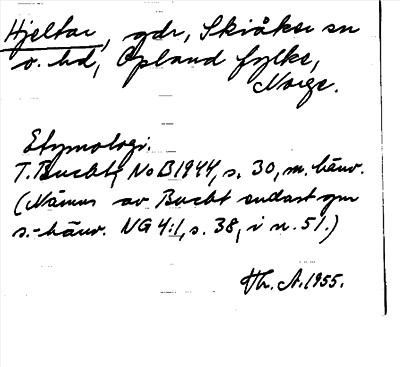 Hjeltar, gdr, Skiåker sn
o. hd, Opland fylke,
Norge.
Etymologi:
T. Bucht, NoB 1944, s. 30, m. hänv.
(Nämns av Bucht endast gm
s.-hänv. NG 4:1, s. 38, i n. 51.)
Th. A. 1955.